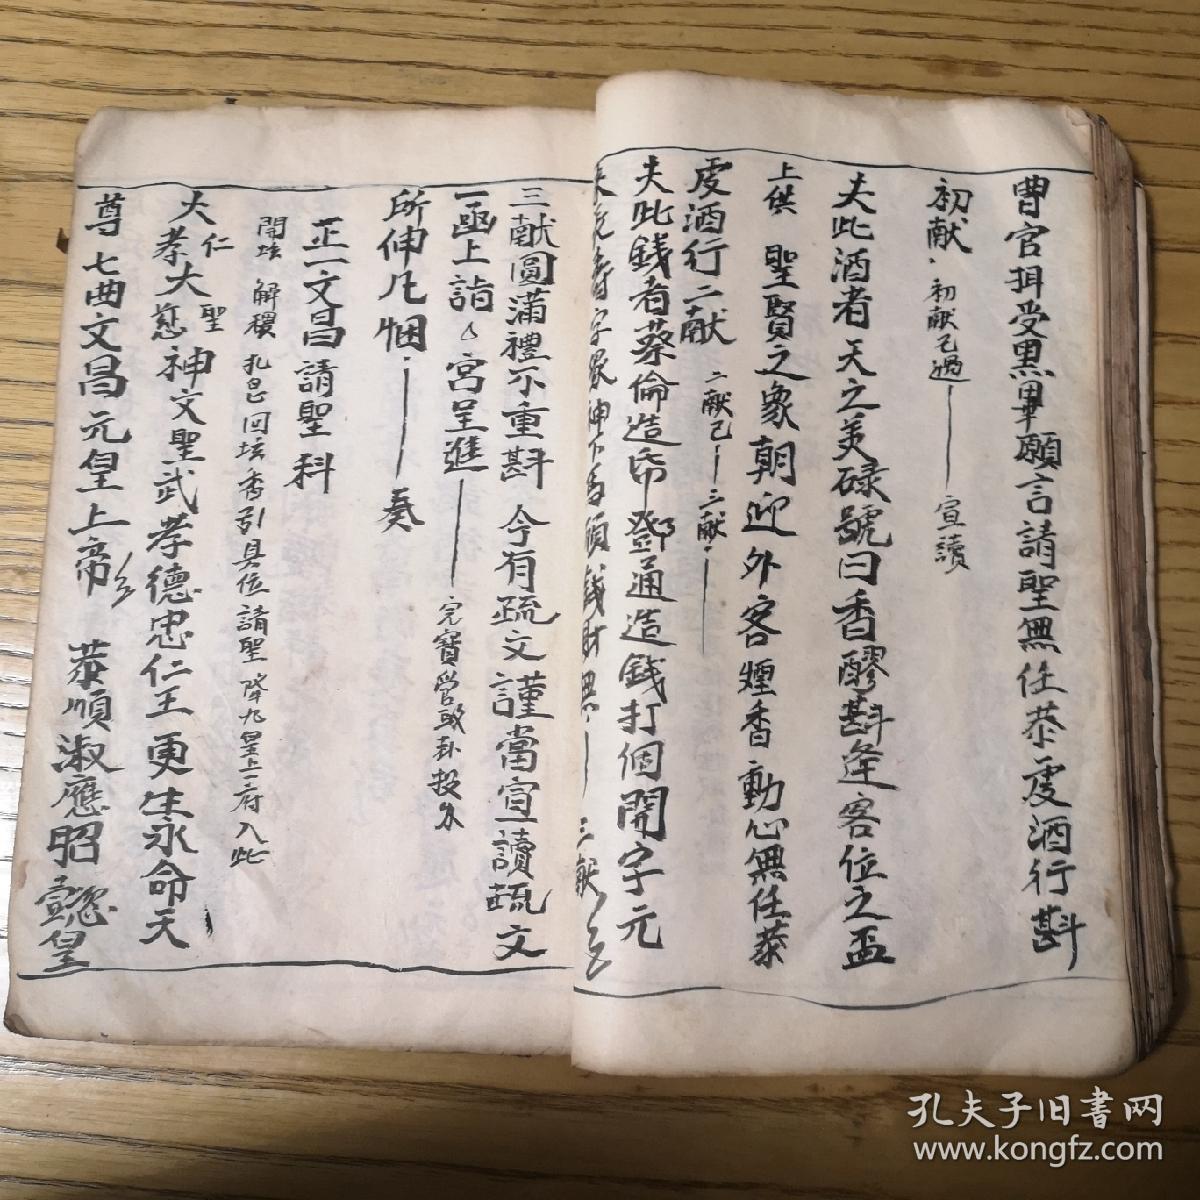 曹官拜受畢願言請聖無任恭虔酒行斟
初献 初献已過 宣讀
夫此酒者天之美碌號曰香醪斟逢客位之盃
上供 聖賢之象朝迎外客煙香動心無任恭
虔酒行二献 二献已 二献
夫此錢者蔡倫造帋鄧通造錢打個開字元
三献
三献圓滿禮不重斟 今有疏文謹當宣讀疏文
一函上詣 宮呈進 完寶營
所伸凡悃 奏
正一文昌請聖科
開坛 解穢 回坛 香引 具位 請聖 降九皇上府入此
大孝大慈神文聖武孝德忠仁王更生永命天
仁 聖
尊七曲文昌元皇上帝 恭順淑應昭懿皇
孔夫子旧書网
www.kongfz.com